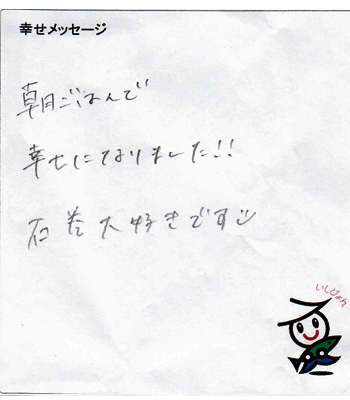 幸せメッセージ
朝ごはんで
幸せになりました!!
石巻大好きです
いしぴょん